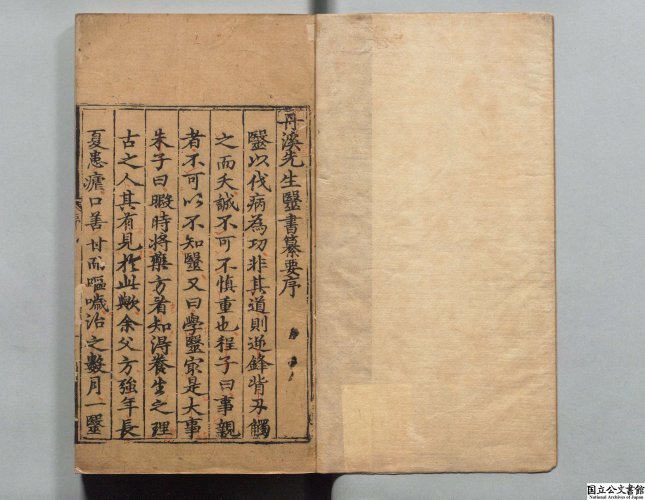 丹溪先生醫書纂要序
醫以伐病為功非其道則逆鋒背刃觸
之而夭誠不可不慎重也程子曰事親
者不可以不知醫又曰學醫宲是大事
朱子曰暇時將藥方看知得養生之理
古之人其有見於此歟余父方強年長
夏患瘧口善甘而嘔噦治之數月一醫
国立公文書館
National Archives of Japan